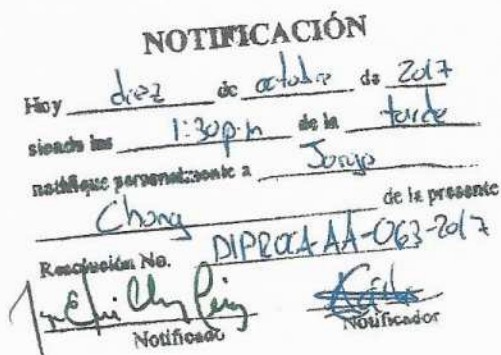 NOTIFICACIÓN
Hoy diez de octubre de 2017
siendo las 1:30 p.m de la tarde
notifique personalmente a Jorge
Chong de la presente
Resolución No. DIPROCA-AA-063-2017
Notificado Notificador